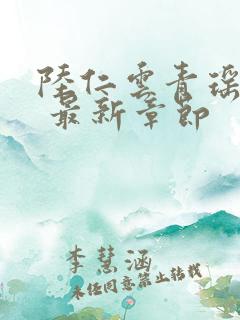 陆仁云青瑶
最新章节
李慧涵
未经同意禁止转载